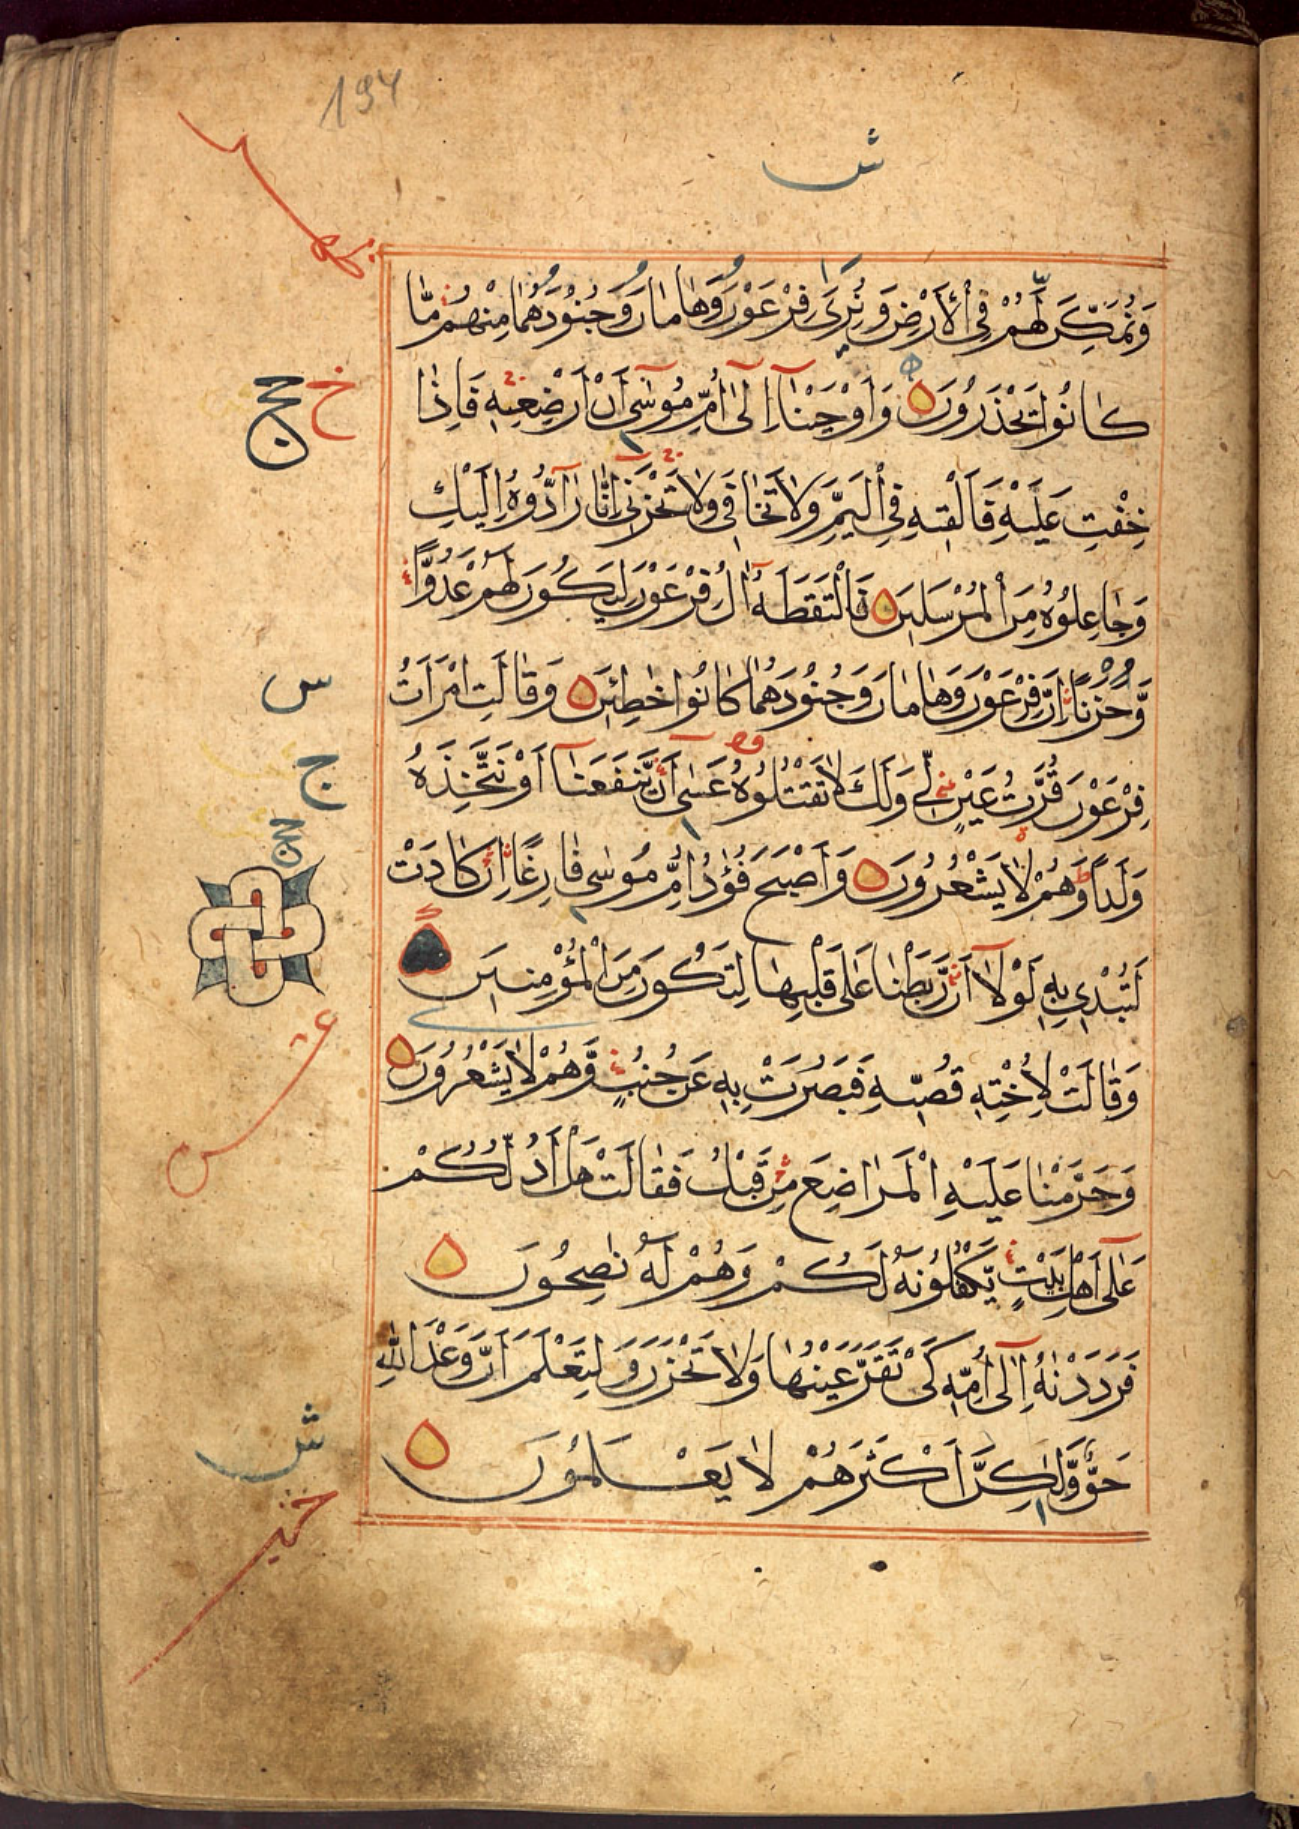 194
ش
وَنُمَكِّنَ لَهُمْ فِي الْأَرْضِ وَنُرِيَ فِرْعَوْنَ وَهَامَانَ وَجُنُوْدَهُمَا مِنْهُمْ مَّا
كَانُوْا يَحْذَرُوْنَ وَاَوْحَيْنَآ اِلٰٓى اُمِّ مُوْسٰٓى اَنْ اَرْضِعِيْهِ فَاِذَا
خ
حج
خِفْتِ عَلَيْهِ فَاَلْقِيْهِ فِي الْيَمِّ وَلَا تَخَافِي وَلَا تَحْزَنِي اِنَّا رَآدُّوْهُ اِلَيْكِ
وَجَاعِلُوْهُ مِنَ الْمُرْسَلِيْنَ فَالْتَقَطَهُٓ اٰلُ فِرْعَوْنَ لِيَكُوْنَ لَهُمْ عَدُوًّا
وَّحَزَنًا اِنَّ فِرْعَوْنَ وَهَامَانَ وَجُنُوْدَهُمَا كَانُوْا خٰطِئِيْنَ وَقَالَتِ امْرَاَتُ
س
فِرْعَوْنَ قُرَّتُ عَيْنٍ لِّي وَلَكَ لَا تَقْتُلُوْهُ عَسٰٓى اَنْ يَّنْفَعَنَآ اَوْ نَتَّخِذَهُ
ج
وَلَدًا وَّهُمْ لَا يَشْعُرُوْنَ وَاَصْبَحَ فُؤٰدُ اُمِّ مُوْسٰى فَارِغًا اِنْ كَادَتْ
حج
لَتُبْدِي بِهِ لَوْلَآ اَنْ رَّبَطْنَا عَلٰى قَلْبِهَا لِتَكُوْنَ مِنَ الْمُؤْمِنِيْنَ
عشر
وَقَالَتْ لِاُخْتِهِ قُصِّيْهِ فَبَصُرَتْ بِهِ عَنْ جُنُبٍ وَّهُمْ لَا يَشْعُرُوْنَ
وَحَرَّمْنَا عَلَيْهِ الْمَرَاضِعَ مِنْ قَبْلُ فَقَالَتْ هَلْ اَدُلُّكُمْ
عَلٰٓى اَهْلِ بَيْتٍ يَّكْفُلُوْنَهُ لَكُمْ وَهُمْ لَهُ نٰصِحُوْنَ
فَرَدَدْنٰهُ اِلٰٓى اُمِّهِ كَيْ تَقَرَّ عَيْنُهَا وَلَا تَحْزَنَ وَلِتَعْلَمَ اَنَّ وَعْدَ اللّٰهِ
ش
حَقٌّ وَّلٰكِنَّ اَكْثَرَهُمْ لَا يَعْلَمُوْنَ